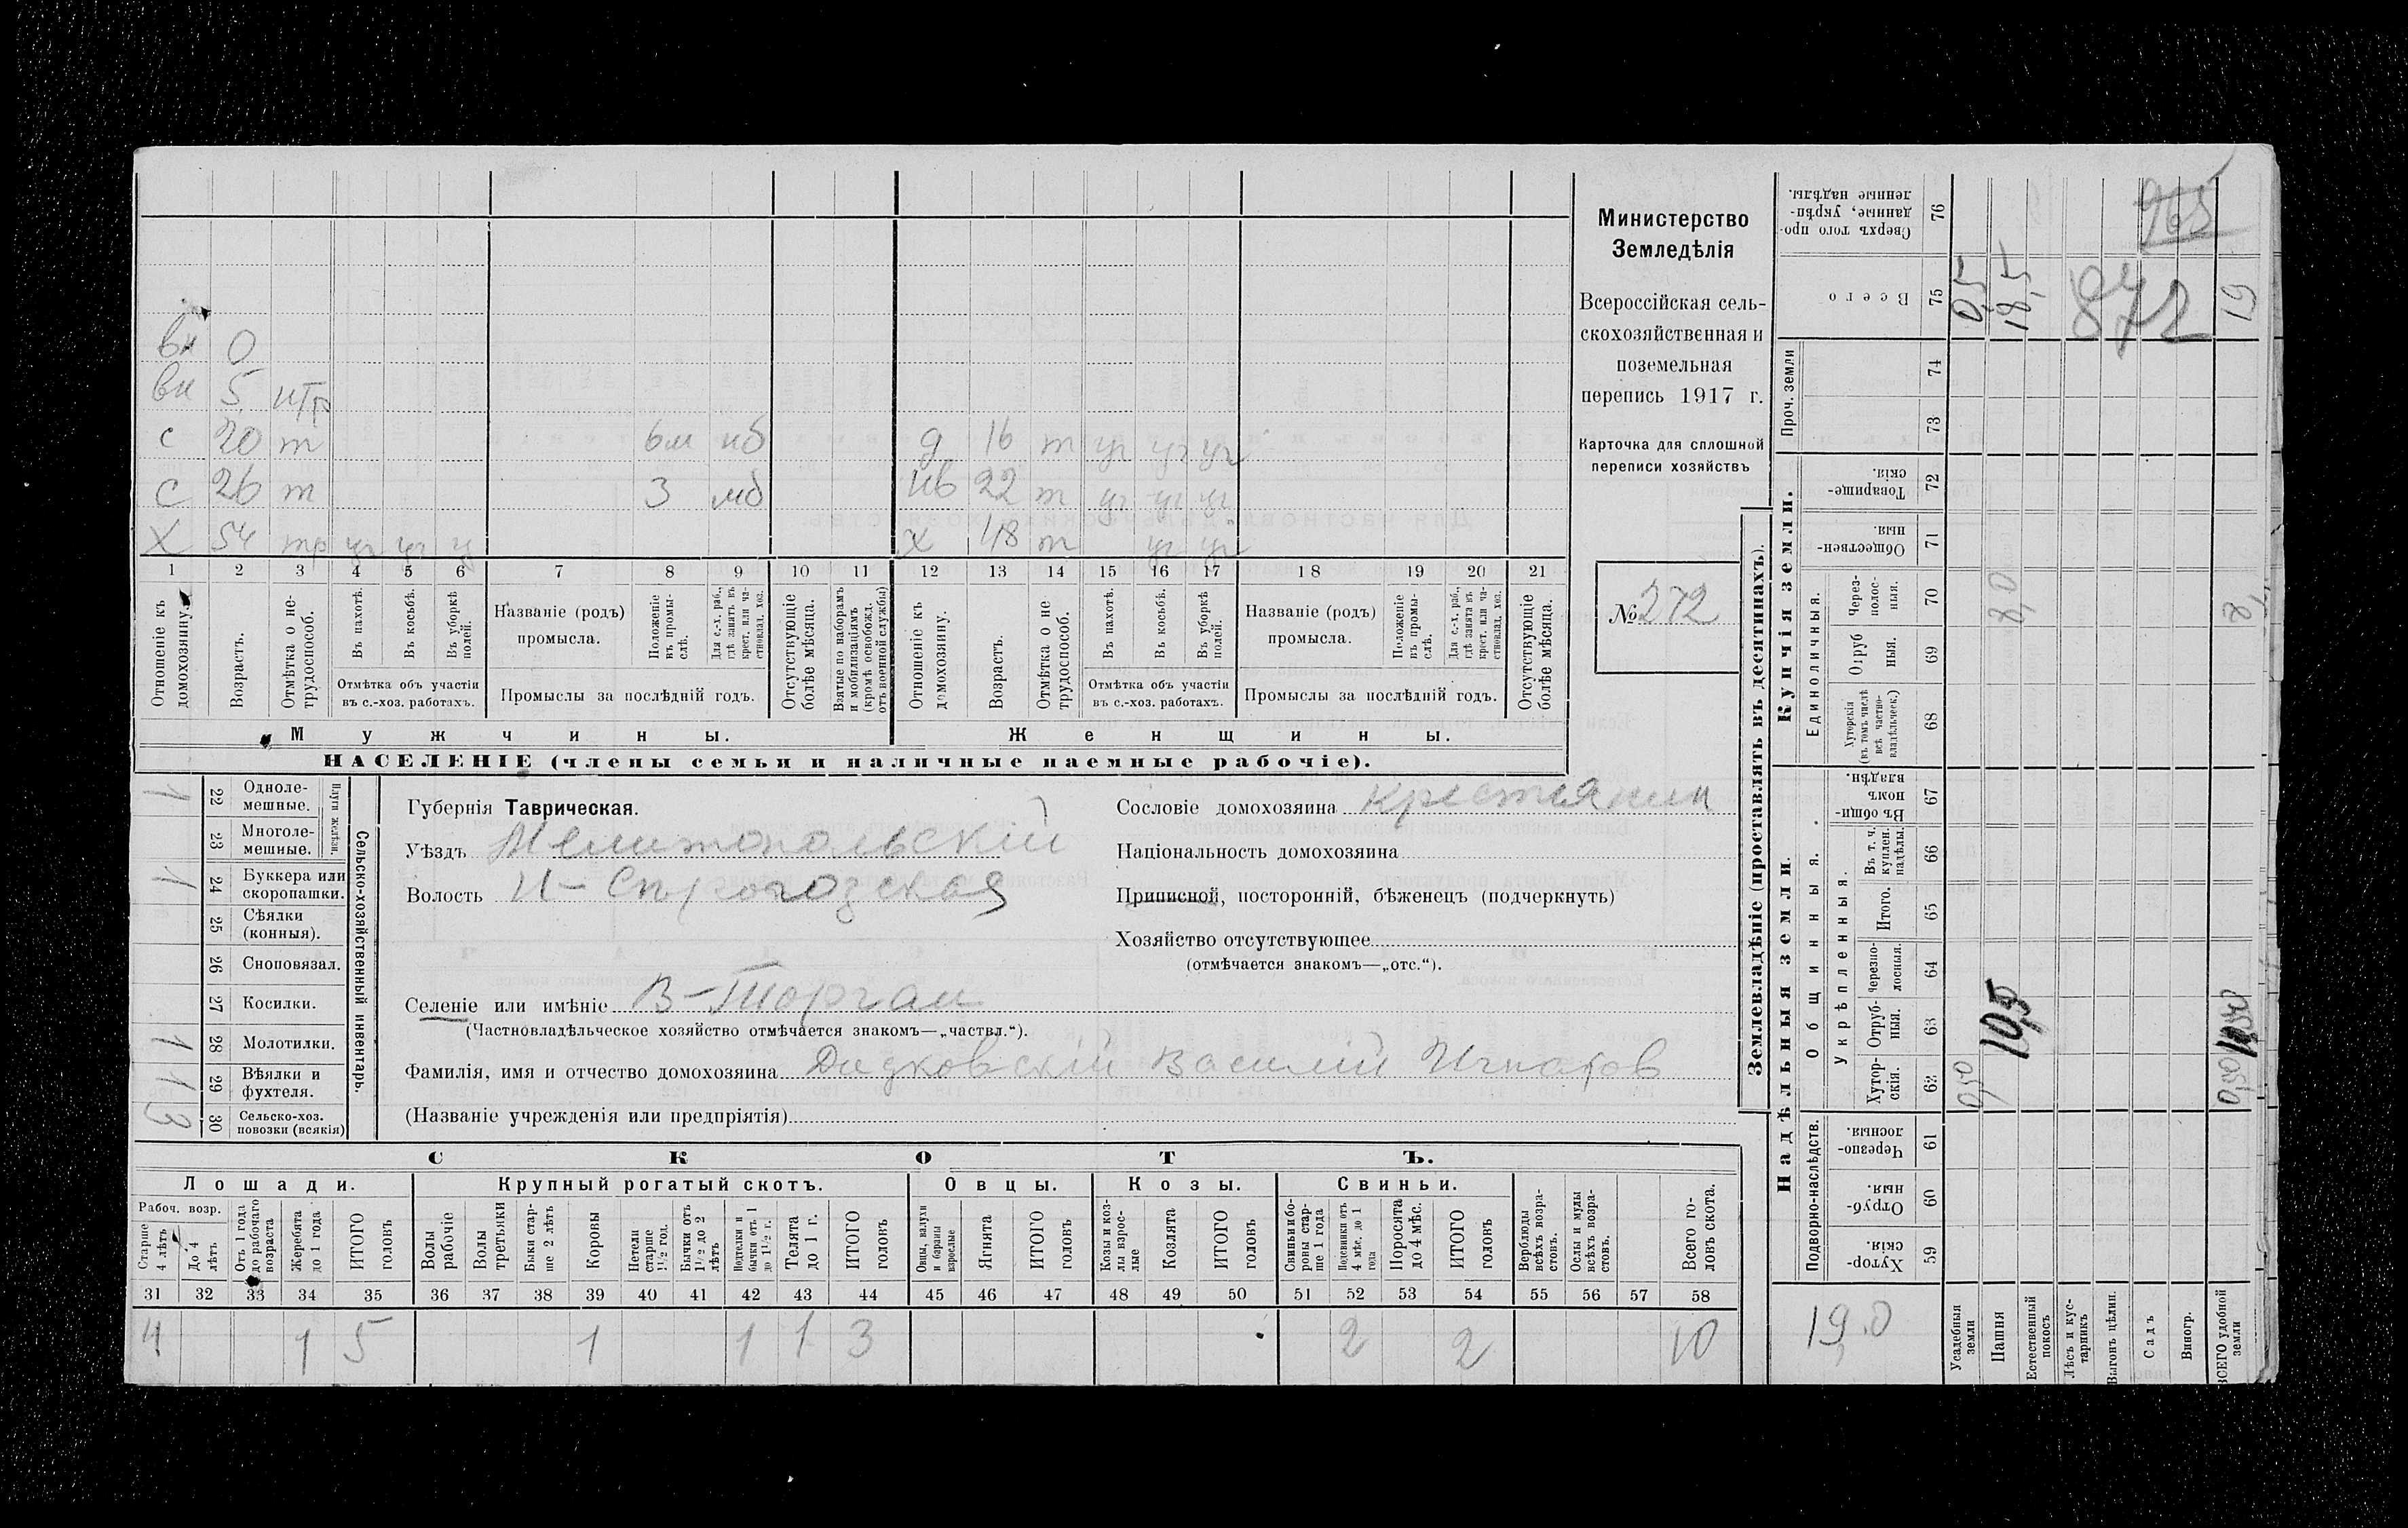 965
872
вн 0
вн 5
с 20 т
с 26 т 3
х 54
д 16 т уч уч уч
22 т уч уч уч
х 48 т уч уч
1 2 3 4 5 6 7 8 9 10 11 12 13 14 15 16 17 18 19 20 21
Отношеніе къ домохозяину.
Возрастъ.
Отмѣтка о не-
трудоспособ.
Въ пахотѣ.
Въ косьбѣ.
Въ уборкѣ полей.
Отмѣтка объ участіи
въ с.-хоз. работахъ.
Названіе (родъ)
промысла.
Положеніе въ промы-
слѣ.
Для с.-х. раб., гдѣ занятъ въ крест. или ча-
стновлад. хоз.
Промыслы за послѣдній годъ.
Отсутствующіе болѣе мѣсяца.
Взятые по наборамъ и мобилизаціямъ (кромѣ освобожд. отъ военной службы)
Отношеніе къ домохозяину.
Возрастъ.
Отмѣтка о не
трудоспособ.
Въ пахотѣ.
Въ косьбѣ.
Въ уборкѣ полей.
Отмѣтка объ участіи
въ с.-хоз. работахъ.
Названіе (родъ)
промысла.
Положеніе въ промы-
слѣ.
Для с.-х. раб., гдѣ занята въ крест. или ча-
стновлад. хоз.
Промыслы за послѣдній годъ.
Отсутствующіе болѣе мѣсяца.
Мужчины.
Женщины.
НАСЕЛЕНІЕ (члены семьи и наличные наемные рабочіе).
Министерство
Земледѣлія
Всероссійская сель-
скохозяйственная и
поземельная
перепись 1917 г.
Карточка для сплошной
переписи хозяйствъ
№ 272
1 22 Одноле-
мешные.
23 Многоле-
мешные.
Плуги желѣзн.
1 24 Буккера или
скоропашки.
25 Сѣялки
(конныя).
26 Сноповязал.
27 Косилки.
1 28 Молотилки.
1 29 Вѣялки и
фухтеля.
3 30 Сельско-хоз.
повозки (всякія)
Сельско-хозяйственный инвентарь.
Губернія Таврическая.
Уѣздъ Мелитопольскій
Волость
Селеніе или имѣніе В-Торгаи
(Частновладѣльческое хозяйство отмѣчается знакомъ—„частвл.“).
Фамилія, имя и отчество домохозяина Дидковскій Василий Игнатов
(Названіе учрежденія или предпріятія)
Сословіе домохозяина крестьянин
Національность домохозяина
Приписной, посторонній, бѣженецъ (подчеркнуть)
Хозяйство отсутствующее
(отмѣчается знакомъ—„отс.“).
СКОТЪ.
Лошади.
Крупный рогатый скотъ.
Овцы.
Козы.
Свиньи.
Рабоч. возр.
Старше 4 лѣтъ
До 4 лѣтъ
Отъ 1 года до рабочаго возраста
Жеребята до 1 года
ИТОГО головъ
Волы рабочіе
Волы третьяки
Быки стар-
ше 2 лѣтъ
Коровы
Нетели старше 1½ год.
Бычки отъ 1½ до 2 лѣтъ
Подтелки и бычки отъ 1 до 1½ г.
Телята до 1 г.
ИТОГО головъ
Овцы, валухи и бараны взрослые
Ягнята
ИТОГО головъ
Козы и коз-
лы взрос-
лые
Козлята
ИТОГО головъ
Свиньи и бо-
ровы стар-
ше 1 года
Подсвинки отъ 4 мѣс. до 1 года
Поросята до 4 мѣс.
ИТОГО головъ
Верблюды всѣхъ возра-
стовъ.
Ослы и мулы всѣхъ возра-
стовъ.
Всего го-
ловъ скота.
31 32 33 34 35 36 37 38 39 40 41 42 43 44 45 46 47 48 49 50 51 52 53 54 55 56 57 58
4 1 5 1 1 1 3 2 2 10
Землевладѣніе (проставлять въ десятинахъ).
Надѣльныя земли.
Купчія земли.
Проч. земли
Подворно-наслѣдств.
Общинныя.
Укрѣпленныя.
Единоличныя.
Сверхъ того про-
данные, укрѣп-
ленные надѣлы. 76
Всего 75 0,5 18,5 19
74
73
Товарище-
скія. 72
Обществен-
ныя. 71
Через-
полос-
ныя. 70 8,0
Отруб
ныя. 69
Хуторскія (въ томъ числѣ всѣ частно-
владѣльческ.) 68
Въ общин-
номъ
владѣн. 67
Въ т. ч. куплен. надѣлы. 66
Итого. 65
Черезпо-
лосныя. 64
Отруб-
ныя. 63 10,5
Хутор-
скія. 62 0,50 0,50
Черезпо-
лосныя. 61
Отруб-
ныя. 60
Хутор-
скія. 59
19,0
Усадебныя земли
Пашня
Естественный покосъ
Лѣсъ и кус-
тарникъ
Выгонъ цѣлин.
Садъ
Виногр.
ВСЕГО удобной земли